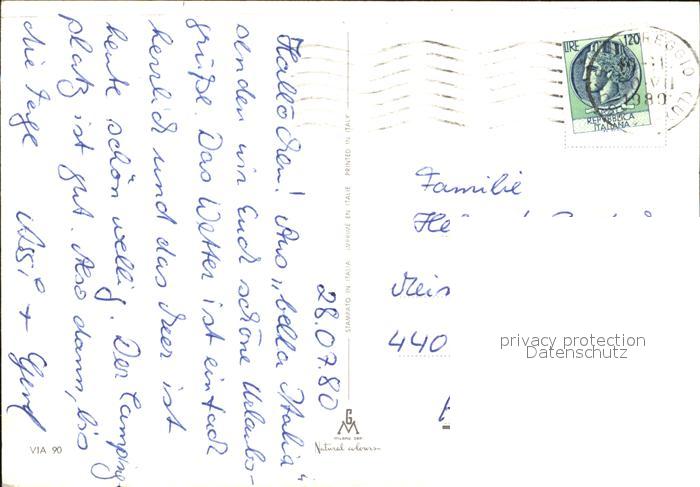 28.07.80
Hallöchen! Aus „bella Italia“
senden wir Euch schöne Urlaubs-
grüße. Das Wetter ist einfach
herrlich und das Meer ist
heute schön wellig. Der Camping-
platz ist gut. Also dann, bis
die Tage
+ Gerd
VIA 90
STAMPATO IN ITALIA IMPRIMÉ EN ITALIE PRINTED IN ITALY
GM
Natural colours
LIRE 120
REPUBBLICA
ITALIANA
REGGIO
1980
Familie
He
Meis
440
privacy protection
Datenschutz